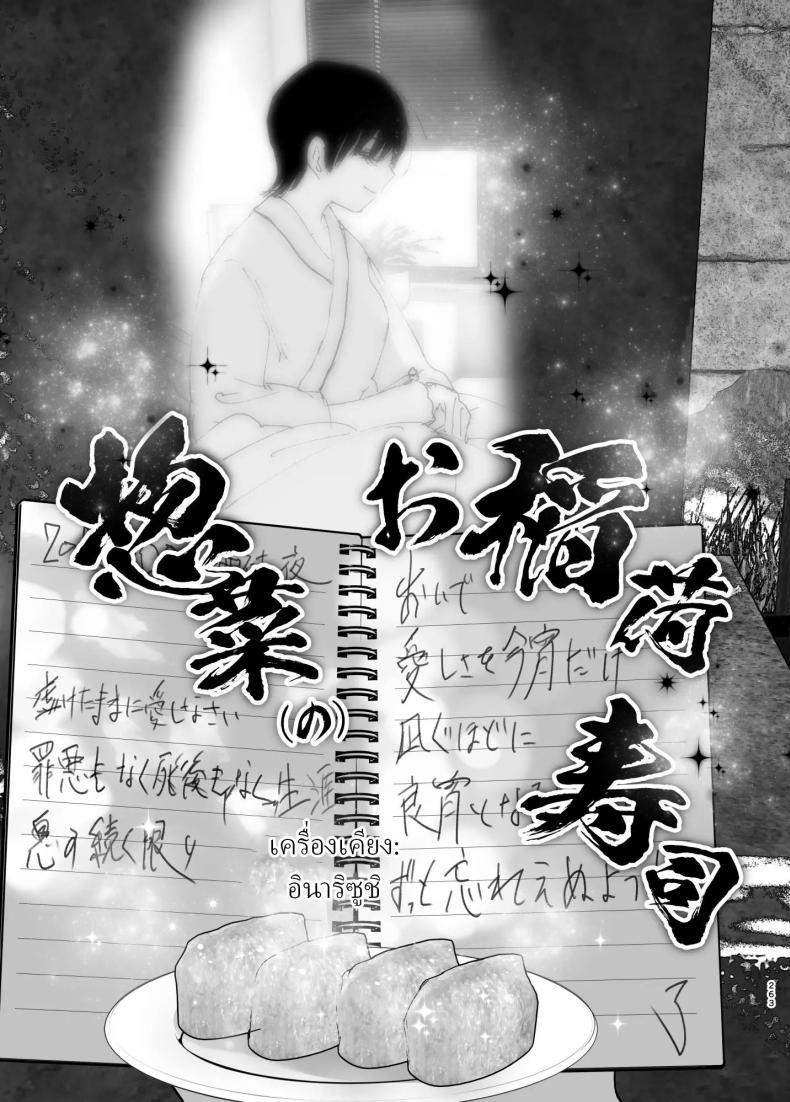 お稲荷
寿司
惣菜
(の)
おいで
愛しさを今宵だけ
凪ぐほどに
良宵となる
ずっと忘れえぬよう
了
夜
虚けたままに愛しなさい
罪悪もなく死後もなく生涯
息の続く限り
เครื่องเคียง:
อินาริซูชิ
263